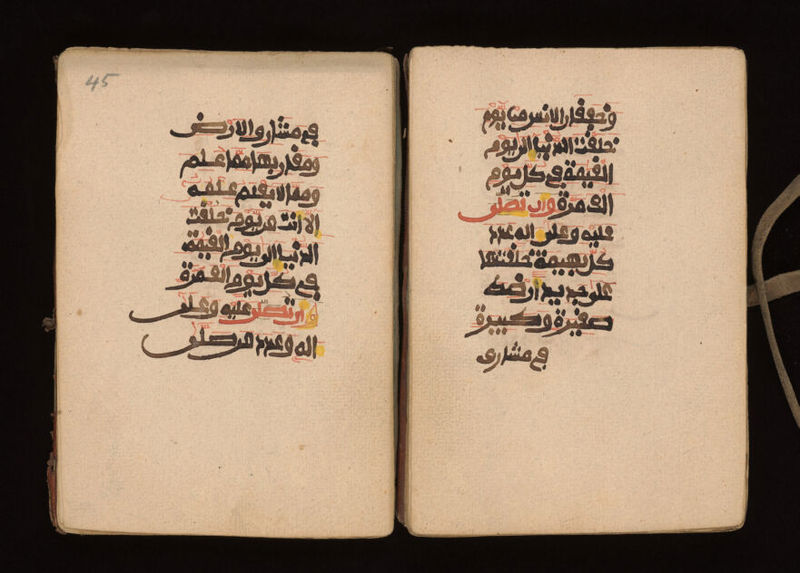 وخفقان الانس من يوم
خلقت الدنيا الى يوم
القيمة في كل يوم
الف مرة وان تصلى
عليه وعلى اله عدد
كل بهيمة خلقتها
على جديد ارضك
صغيرة وكبيرة
في مشارق
45
في مشارق الارض
ومغاربها مما علم
ومما لا يعلم علمه
الا انت من يوم خلقت
الدنيا الى يوم القيمة
في كل يوم الف مرة
وان تصلى عليه وعلى
اله وعدد من صلى